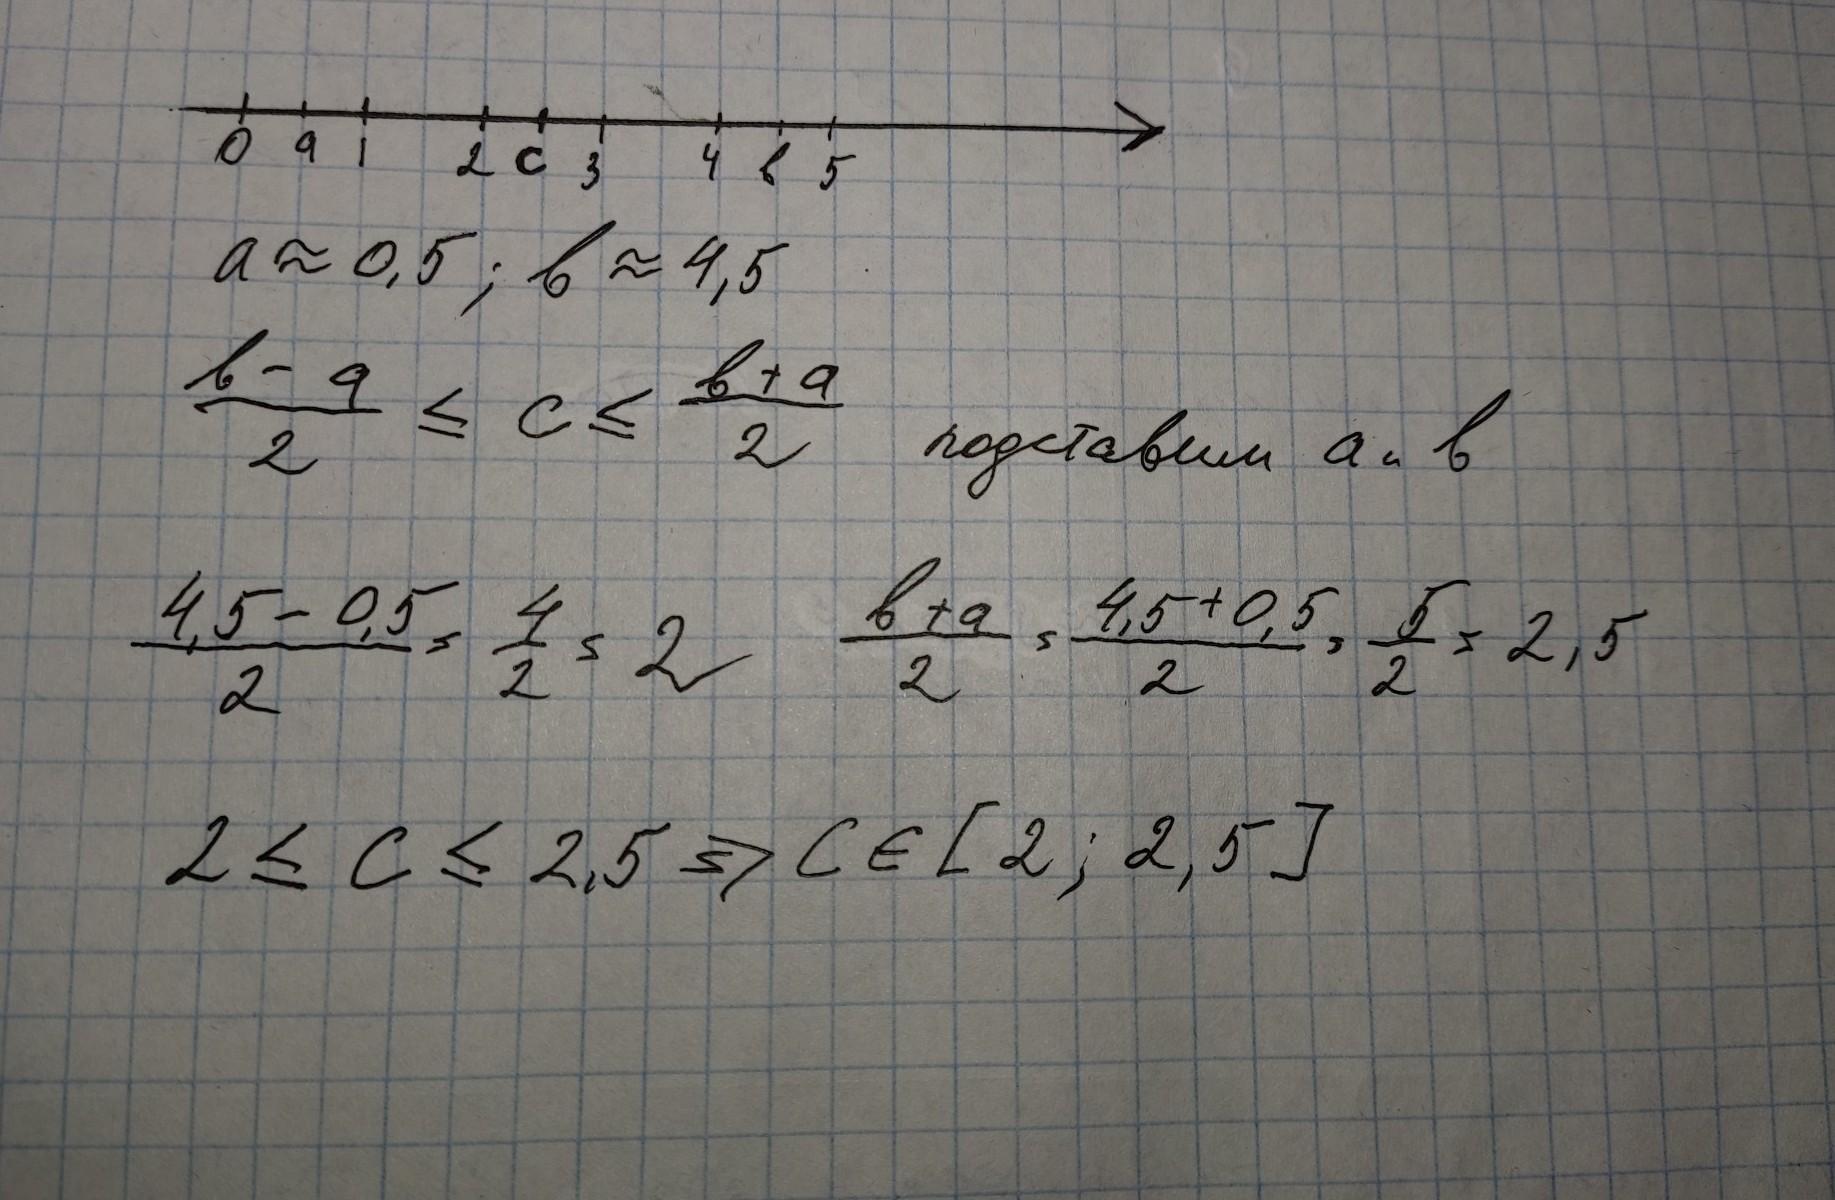 0 a 1 2 c 3 4 b 5
a ≈ 0,5 ; b ≈ 4,5
(b - a)/2 ≤ c ≤ (b + a)/2 подставим a и b
(4,5 - 0,5)/2 = 4/2 = 2 (b + a)/2 = (4,5 + 0,5)/2 = 5/2 = 2,5
2 ≤ c ≤ 2,5 => c ∈ [2 ; 2,5]